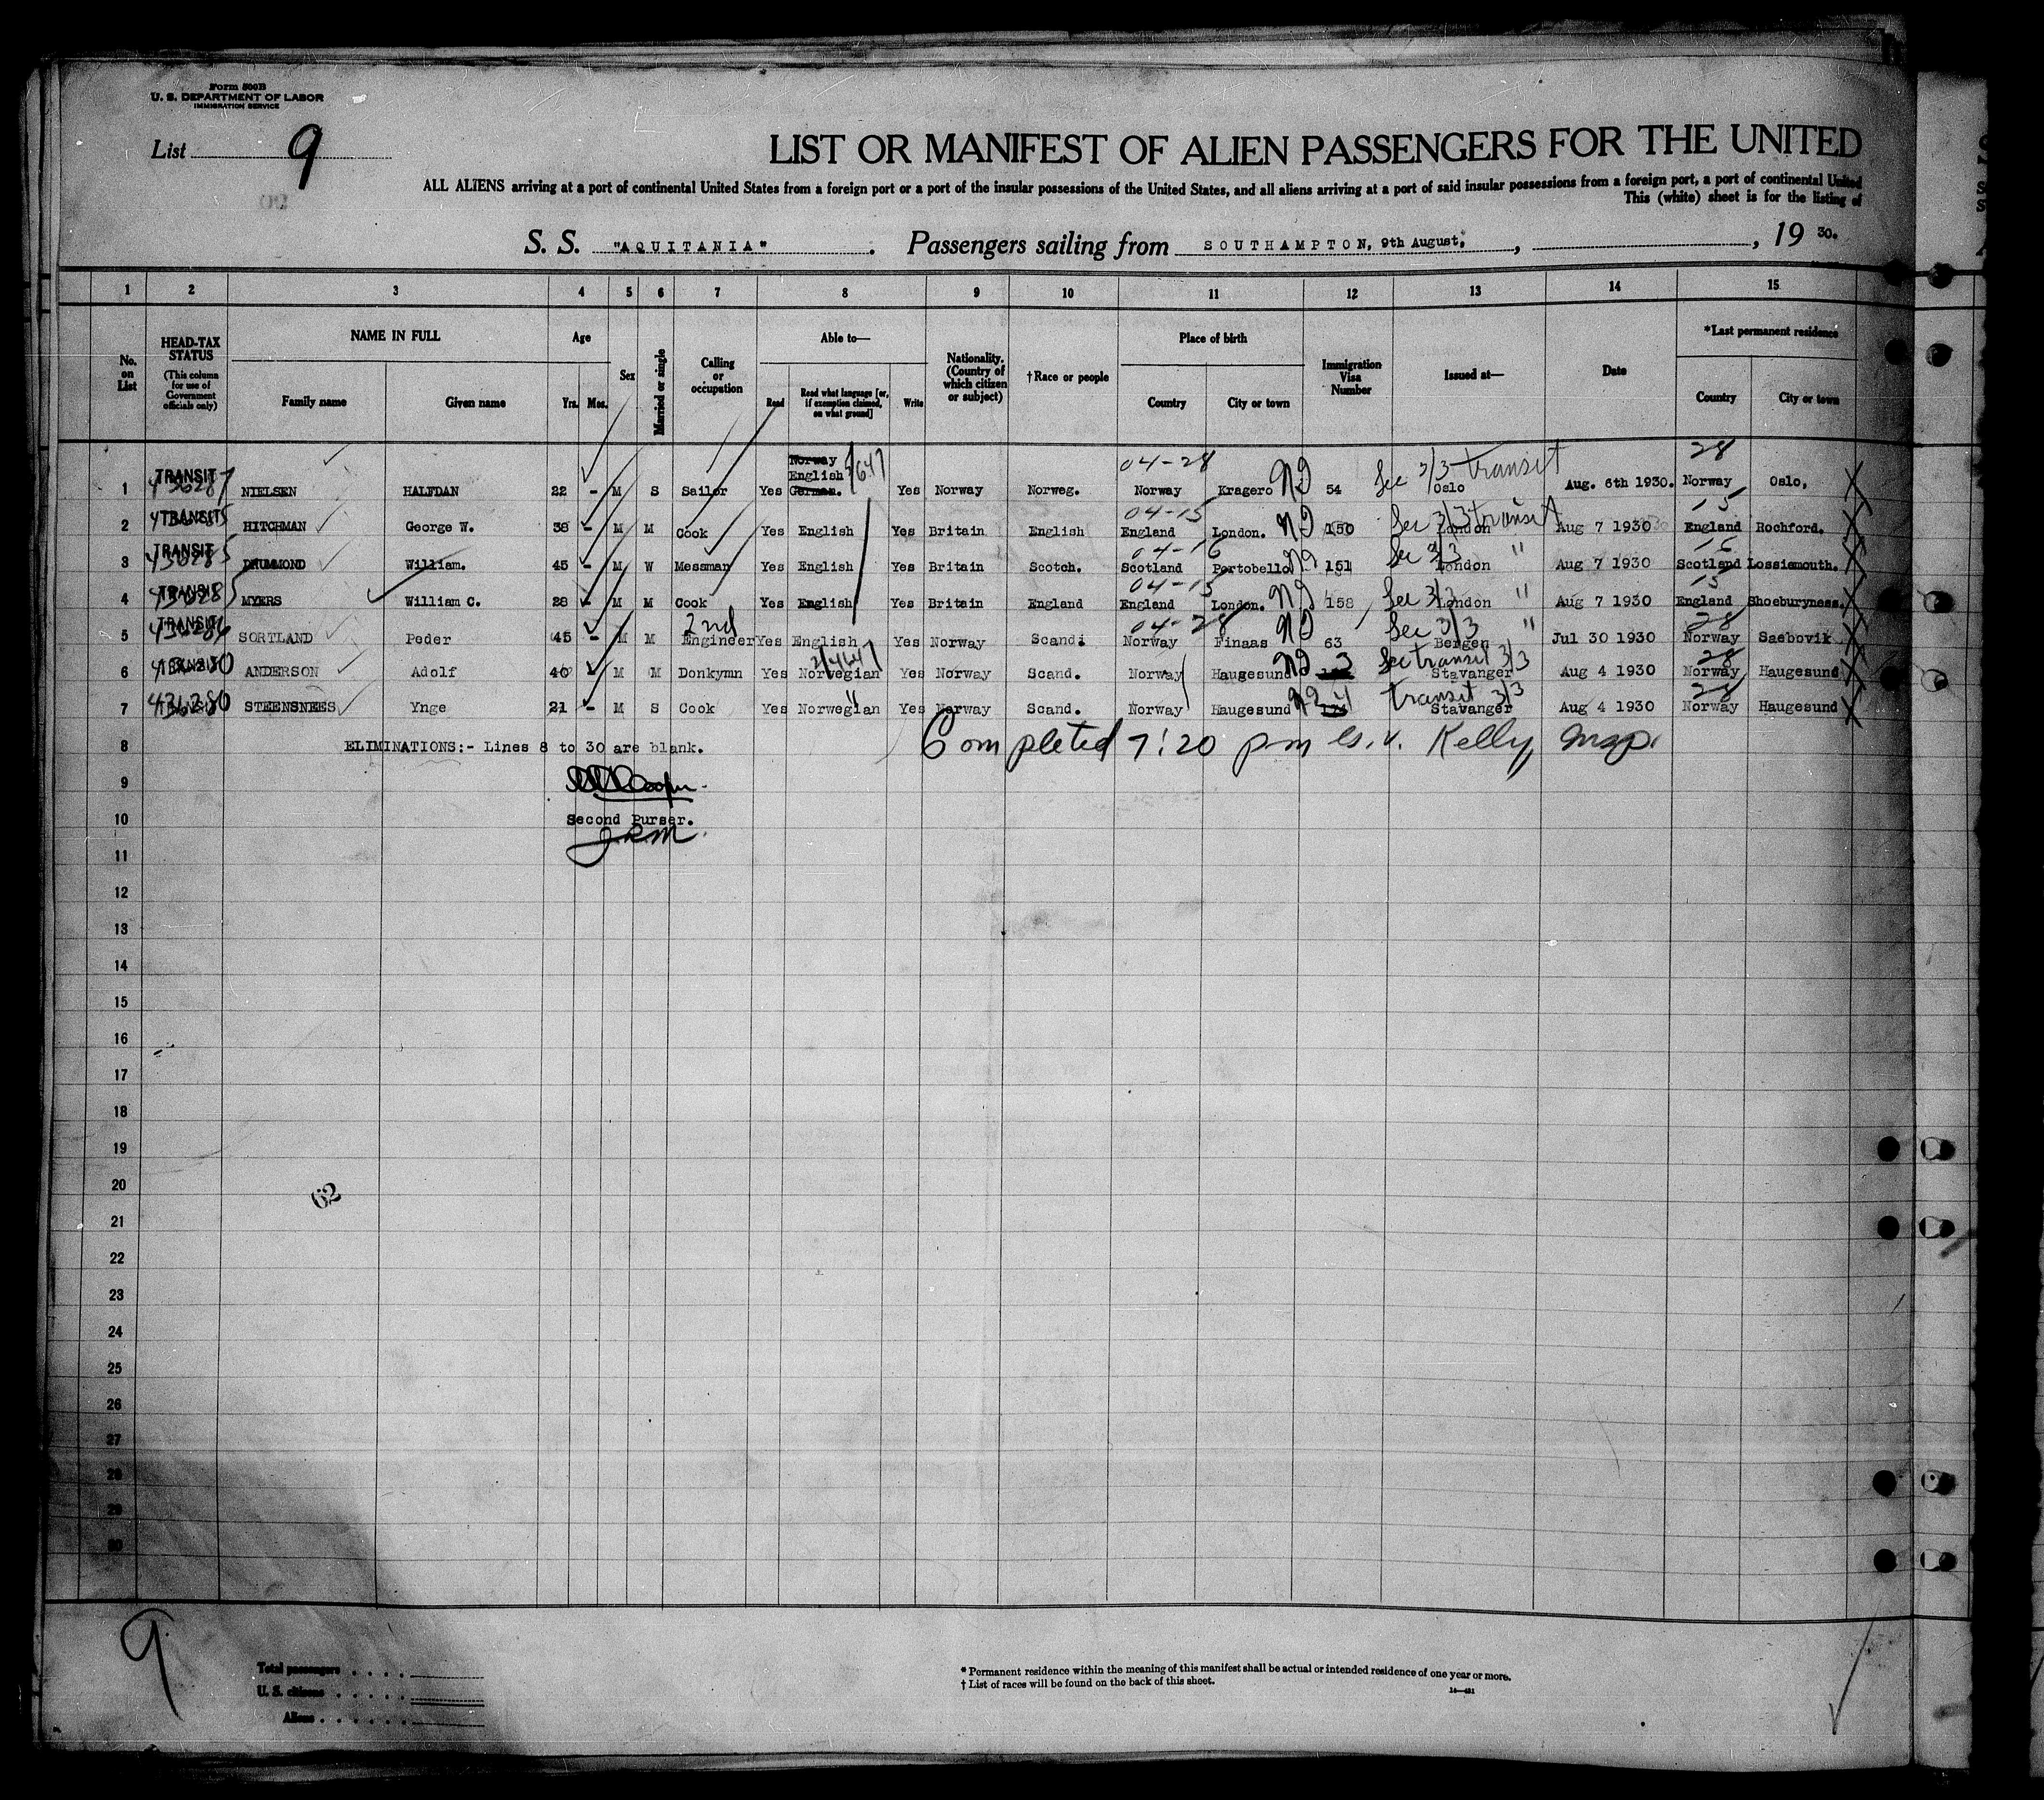 Form 500B
U. S. DEPARTMENT OF LABOR
IMMIGRATION SERVICE
List 9
LIST OR MANIFEST OF ALIEN PASSENGERS FOR THE UNITED
ALL ALIENS arriving at a port of continental United States from a foreign port or a port of the insular possessions of the United States, and all aliens arriving at a port of said insular possessions from a foreign port, a port of continental United
This (white) sheet is for the listing of
S. S. "AQUITANIA". Passengers sailing from SOUTHAMPTON, 9th August, , 19 30.
1 2 3 4 5 6 7 8 9 10 11 12 13 14 15
No. on List
HEAD-TAX STATUS (This column for use of Government officials only)
NAME IN FULL Family name Given name
Age Yrs. Mos.
Sex
Married or single
Calling or occupation
Able to— Read Read what language [or, if exemption claimed, on what ground] Write
Nationality. (Country of which citizen or subject)
†Race or people
Place of birth Country City or town
Immigration Visa Number
Issued at—
Date
*Last permanent residence Country City or town
Norway 04-28 See 3/3 transit 28
English
1 TRANSIT NIELSEN HALFDAN 22 - M S Sailor Yes German. Yes Norway Norweg. Norway Kragero ND 54 Oslo Aug. 6th 1930. Norway Oslo,
04-15 See 3/3 transit 15
2 TRANSIT HITCHMAN George W. 38 - M M Cook Yes English Yes Britain English England London. ND 150 London Aug 7 1930 England Rochford.
04-16 See 3/3 " 16
3 TRANSIT DRUMMOND William. 45 - M W Messman Yes English Yes Britain Scotch. Scotland Portobello ND 151 London Aug 7 1930 Scotland Lossiemouth.
04-15 See 3/3 " 15
4 TRANSIT MYERS William C. 28 - M M Cook Yes English Yes Britain England England London. ND 158 London Aug 7 1930 England Shoeburyness.
2nd 04-28 See 3/3 " 28
5 TRANSIT SORTLAND Peder 45 - M M Engineer Yes English Yes Norway Scand. Norway Finaas ND 63 Bergen Jul 30 1930 Norway Saebovik
See transit 3/3 28
6 TRANSIT ANDERSON Adolf 40 - M M Donkymn Yes Norwegian Yes Norway Scand. Norway Haugesund ND 3 Stavanger Aug 4 1930 Norway Haugesund
" transit 3/3 28
7 TRANSIT STEENSNEES Ynge 21 - M S Cook Yes Norwegian Yes Norway Scand. Norway Haugesund ND 4 Stavanger Aug 4 1930 Norway Haugesund
8 ELIMINATIONS:- Lines 8 to 30 are blank. Completed 7:20 pm Kelly, Insp.
9 Cooper
10 Second Purser.
JRM
11
12
13
14
15
16
17
18
19
20
62
21
22
23
24
25
26
27
28
29
30
9
Total passengers
U. S. citizens
Aliens
* Permanent residence within the meaning of this manifest shall be actual or intended residence of one year or more.
† List of races will be found on the back of this sheet.